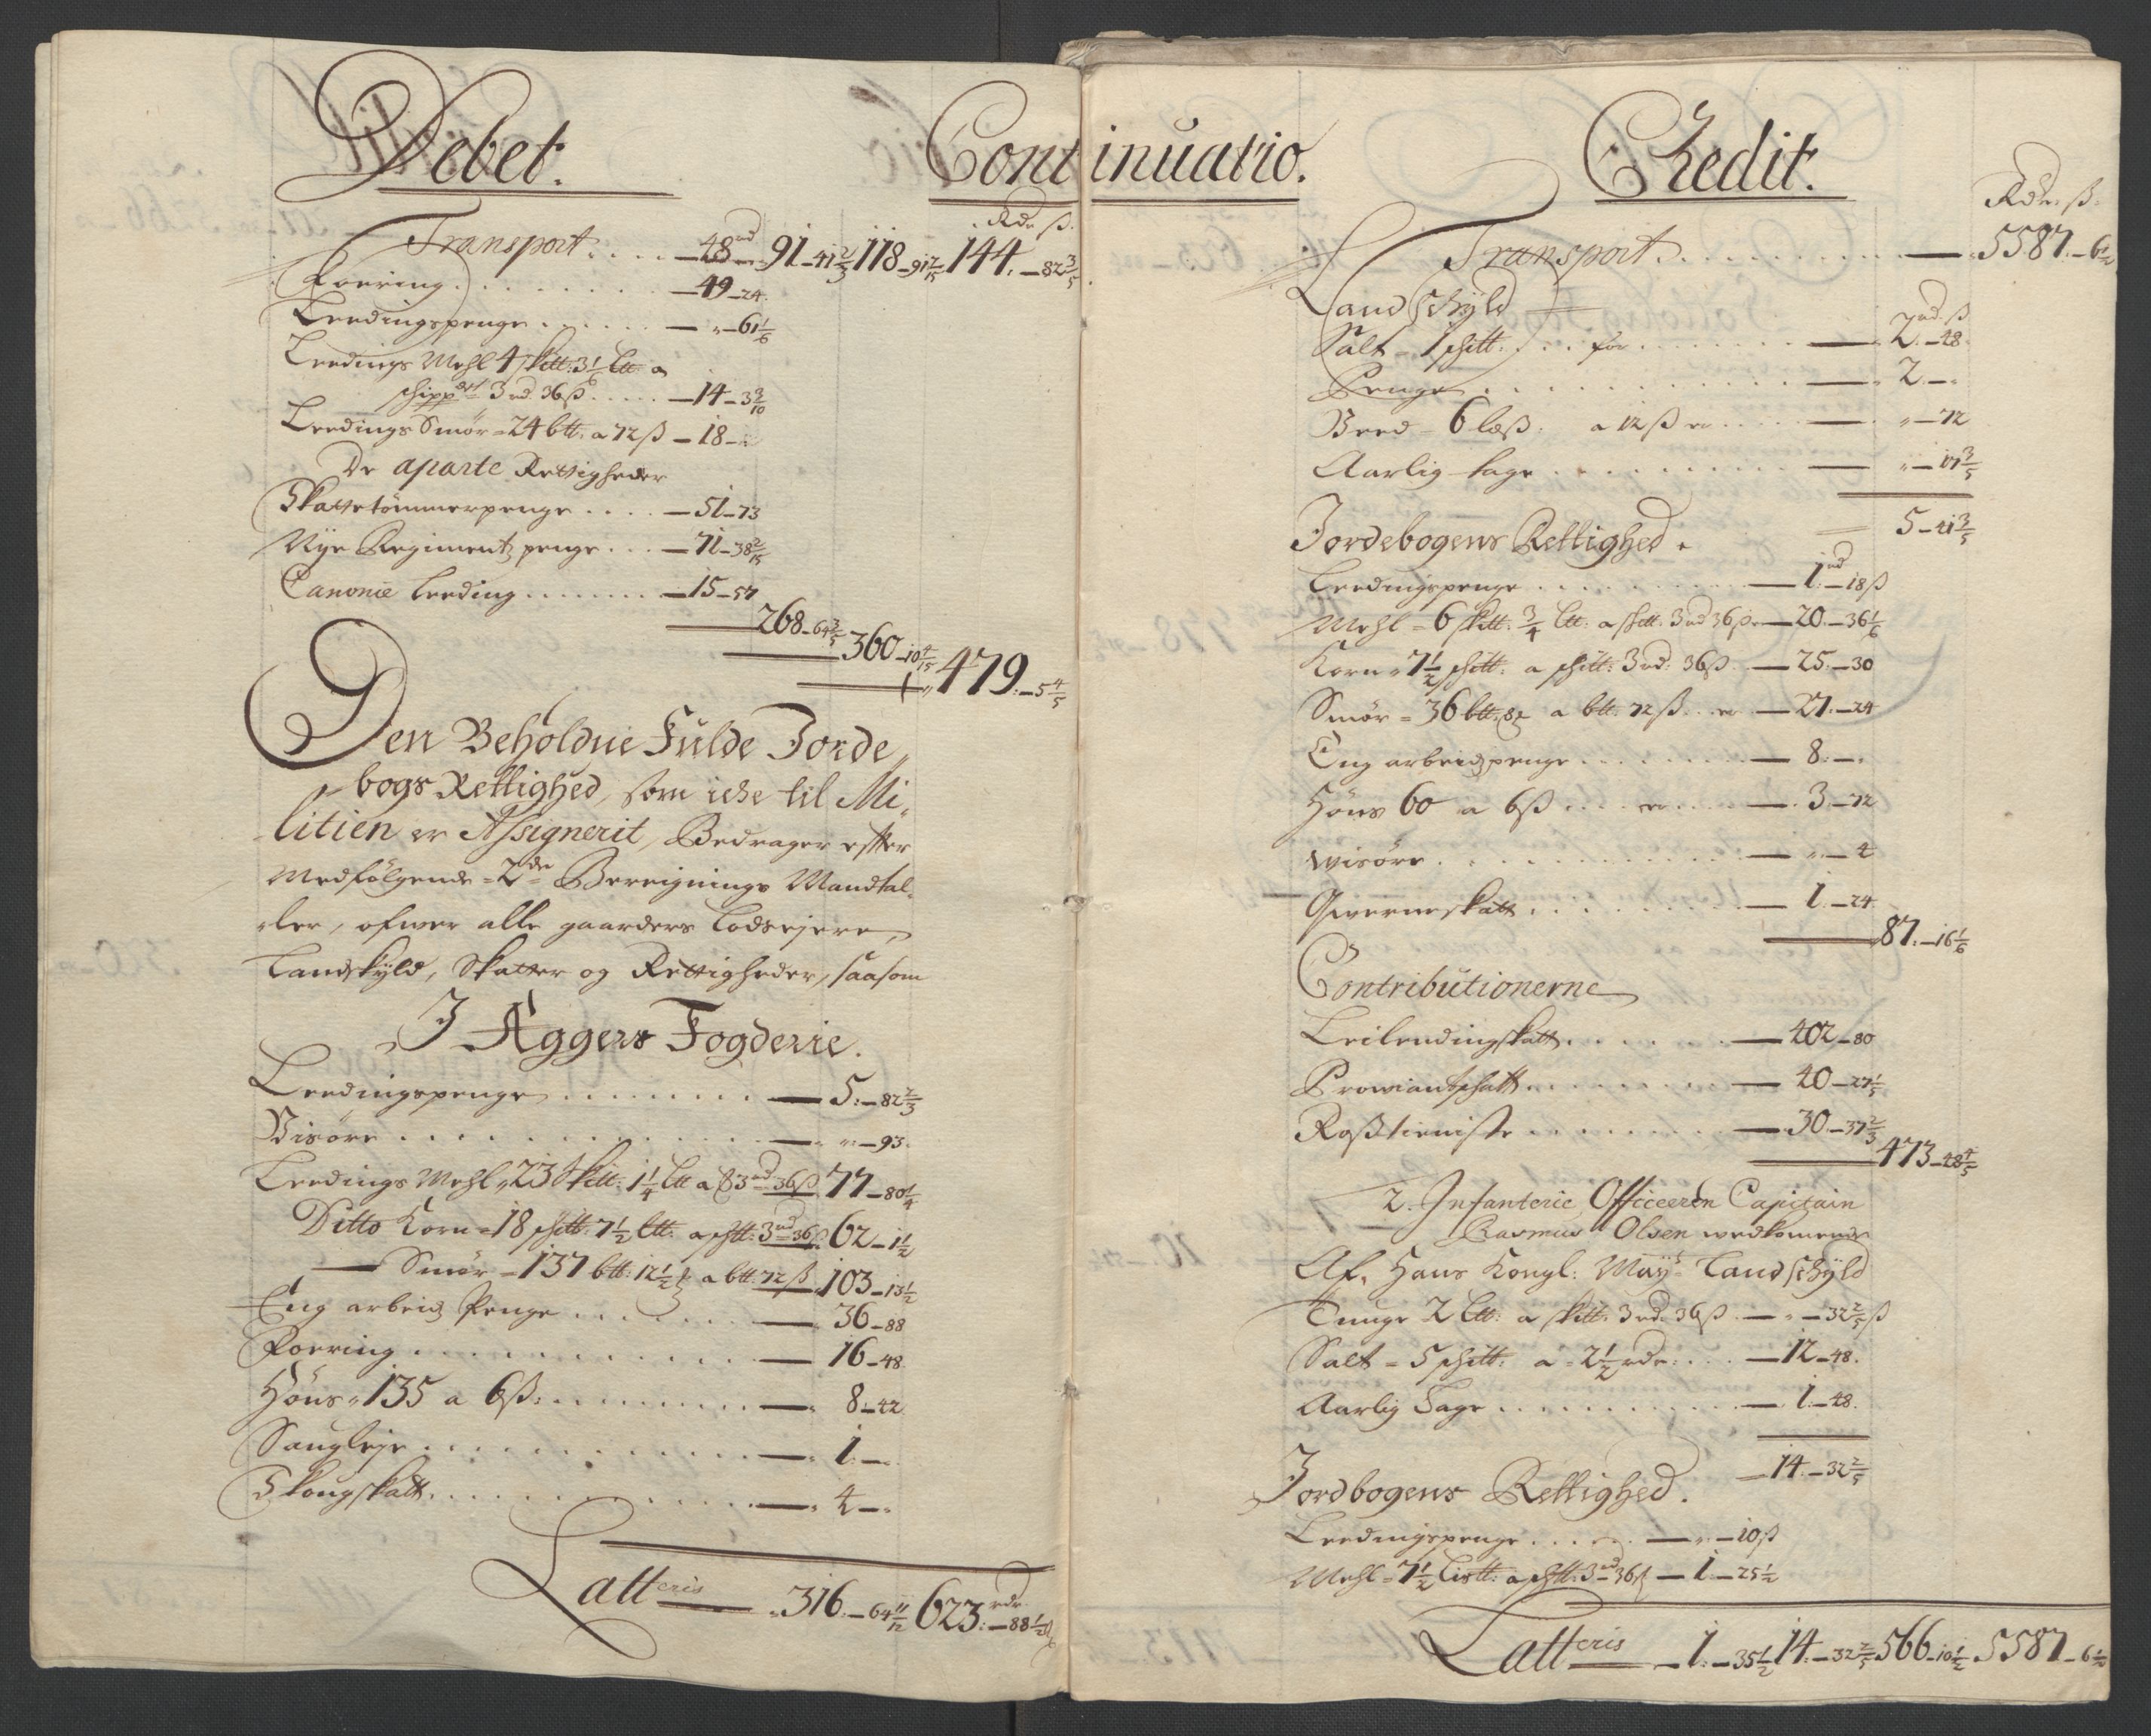 Debet. Continuatio.
Rdr ß.
Transport. . . . . — 48 rd 91 – 41 2/3 118 – 91 7/15 144. – 82 3/5
Foering. . . . . . . . — 49 – 24.
Leedingspenge . . . . . . — „ – 61 1/6
Leedings Mehl 4 skitt: 3 1/2 ltt a
schippdt 3 rd. 36 ß. . . . . — 14 – 3 3/10
Leedings Smør = 24 btt. a 72 ß – 18 – „
De aparte Rettigheder
Skattetømmerpenge . . . . — 51 – 73
Nye Regimentz penge. . . — 71 – 38 2/15
Canonie Leeding . . . . . . . . — 15 – 57
268 – 64 3/5 360 – 10 4/15 479. – 5 4/5
Den Beholdne Fulde Jorde„
bogs Rettighed, som iche til Mi„
litien er Assignerit, Bedrager efter
Medfølgende 2de Bereignings Mandtal„
„ler, ofwer alle gaarders Lodsejere,
Landskyld, Skatter og Rettigheder, saasom
I Aggers Fogderie.
Leedingspenge . . . . . . . . . — 5: – 82 2/3
Visøre . . . . . . . . . . . . — „ – 93.
Leedings Mehl 23 skitt: 1 1/4 ltt a 3 rd 36 ß 77 – 80 1/4
Ditto Korn = 18 schtt: 7 1/2 ltt: a schtt: 3 rd 36 ß 62 – 1 1/2
— Smør = 137 btt: 12 1/2 a btt. 72 ß 103 – 13 1/2
Eng arbeid Penge . . . . . . — 36 – 88
Foering . . . . . . . . . . . . — 16 – 48
Høns 135 a 6 ß: . . . . . . . . . — 8 – 42
Saugleje . . . . . . . . . . . . — 1. – „
Skougskatt. . . . . . . . . . . . — 4 – „
Latteris — 316. – 64 11/12 623: rdr – 88 1/2
Credit.
Rdr. ß.
Transport. . . . . . . . . . . . — 5587. – 6 1/2
Landschyld
rd. ß
Salt – 1 schtt. . . for . . . . . . . — 2. – 48
Penge . . . . . . . . . . . . — 2. – „
Veed – 6 læß. a 12 ß er . . . . . — „ – 72
Aarlig tage . . . . . . . . . . — „ – 17 3/5
5 – 41 3/5
Jordebogens Rettighed.
Leedingspenge . . . . . . . . . . — 1 rd – 18 ß
Mehl = 6 skitt. 3/4 ltt: a schtt. 3 rd 36 ß. — 20. – 36 1/6
Korn 7 1/2 schtt: a schtt: 3 rd. 36 ß — 25. – 30
Smør = 36 btt. a btt. 72 ß. . er — 27. – 24
Eng arbeidspenge . . . . . . . . — 8. – „
Høns 60 a 6 ß . . . er . . . . — 3 – 72
wisøre . . . . . . . . . . . . — „ – 4
Qwerneskatt . . . . . . . . . — 1. – 24
87. – 16 1/6
Contributionerne
Leilendingskatt. . . . . . . — 402 – 80
Prowiantschatt. . . . . . . . — 40 – 27 1/5
Roßtieniste . . . . . . . . — 30. – 37 2/3
473 – 48 4/5
2. Infanterie Officeeren Capitain
Rasmus Olsen wedkomende
Af. Hans Kongl: Mayts Landschyld
Tunge 2 ltt: a skitt. 3 rd. 36 ß. — „ – 32 2/5 ß
Salt = 5 schtt: a = 2 1/2 rdr: . . . — 12 – 48.
Aarlig Tage . . . . . . . . . . — 1. – 48.
— 14. – 32 2/5
Jordbogens Rettighed.
Leedingspenge . . . . . . — „ – 10 ß
Mehl = 7 1/2 Listt: a schtt: 3 rd 36 ß — 1. – 25 1/2
Latteris — 1. – 35 1/2 14. – 32 2/5 566 – 10 1/2 5587 – 6 1/2